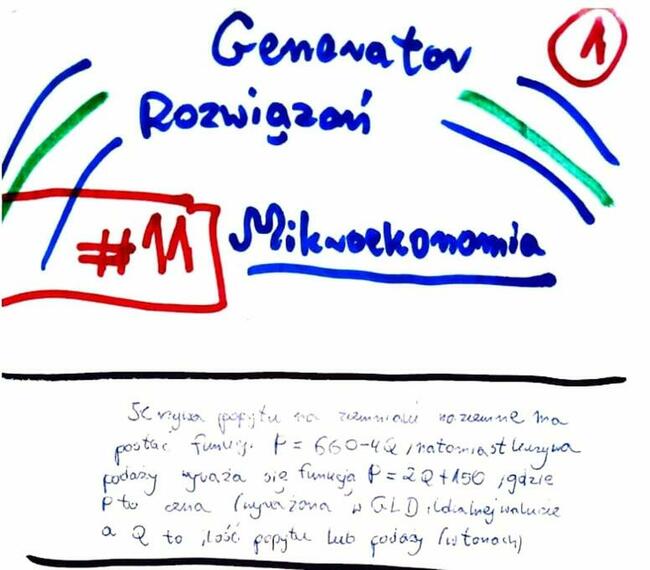 Generator
1
Rozwiązań
#11
Mikroekonomia
Krzywa popytu na ziemniaki naziemne ma
postać funkcji P = 660-4Q, natomiast krzywa
podaży wyraża się funkcją P = 2Q+150, gdzie
P to cena (wyrażona w GLD, lokalnej walucie
a Q to ilość popytu lub podaży (w tonach)